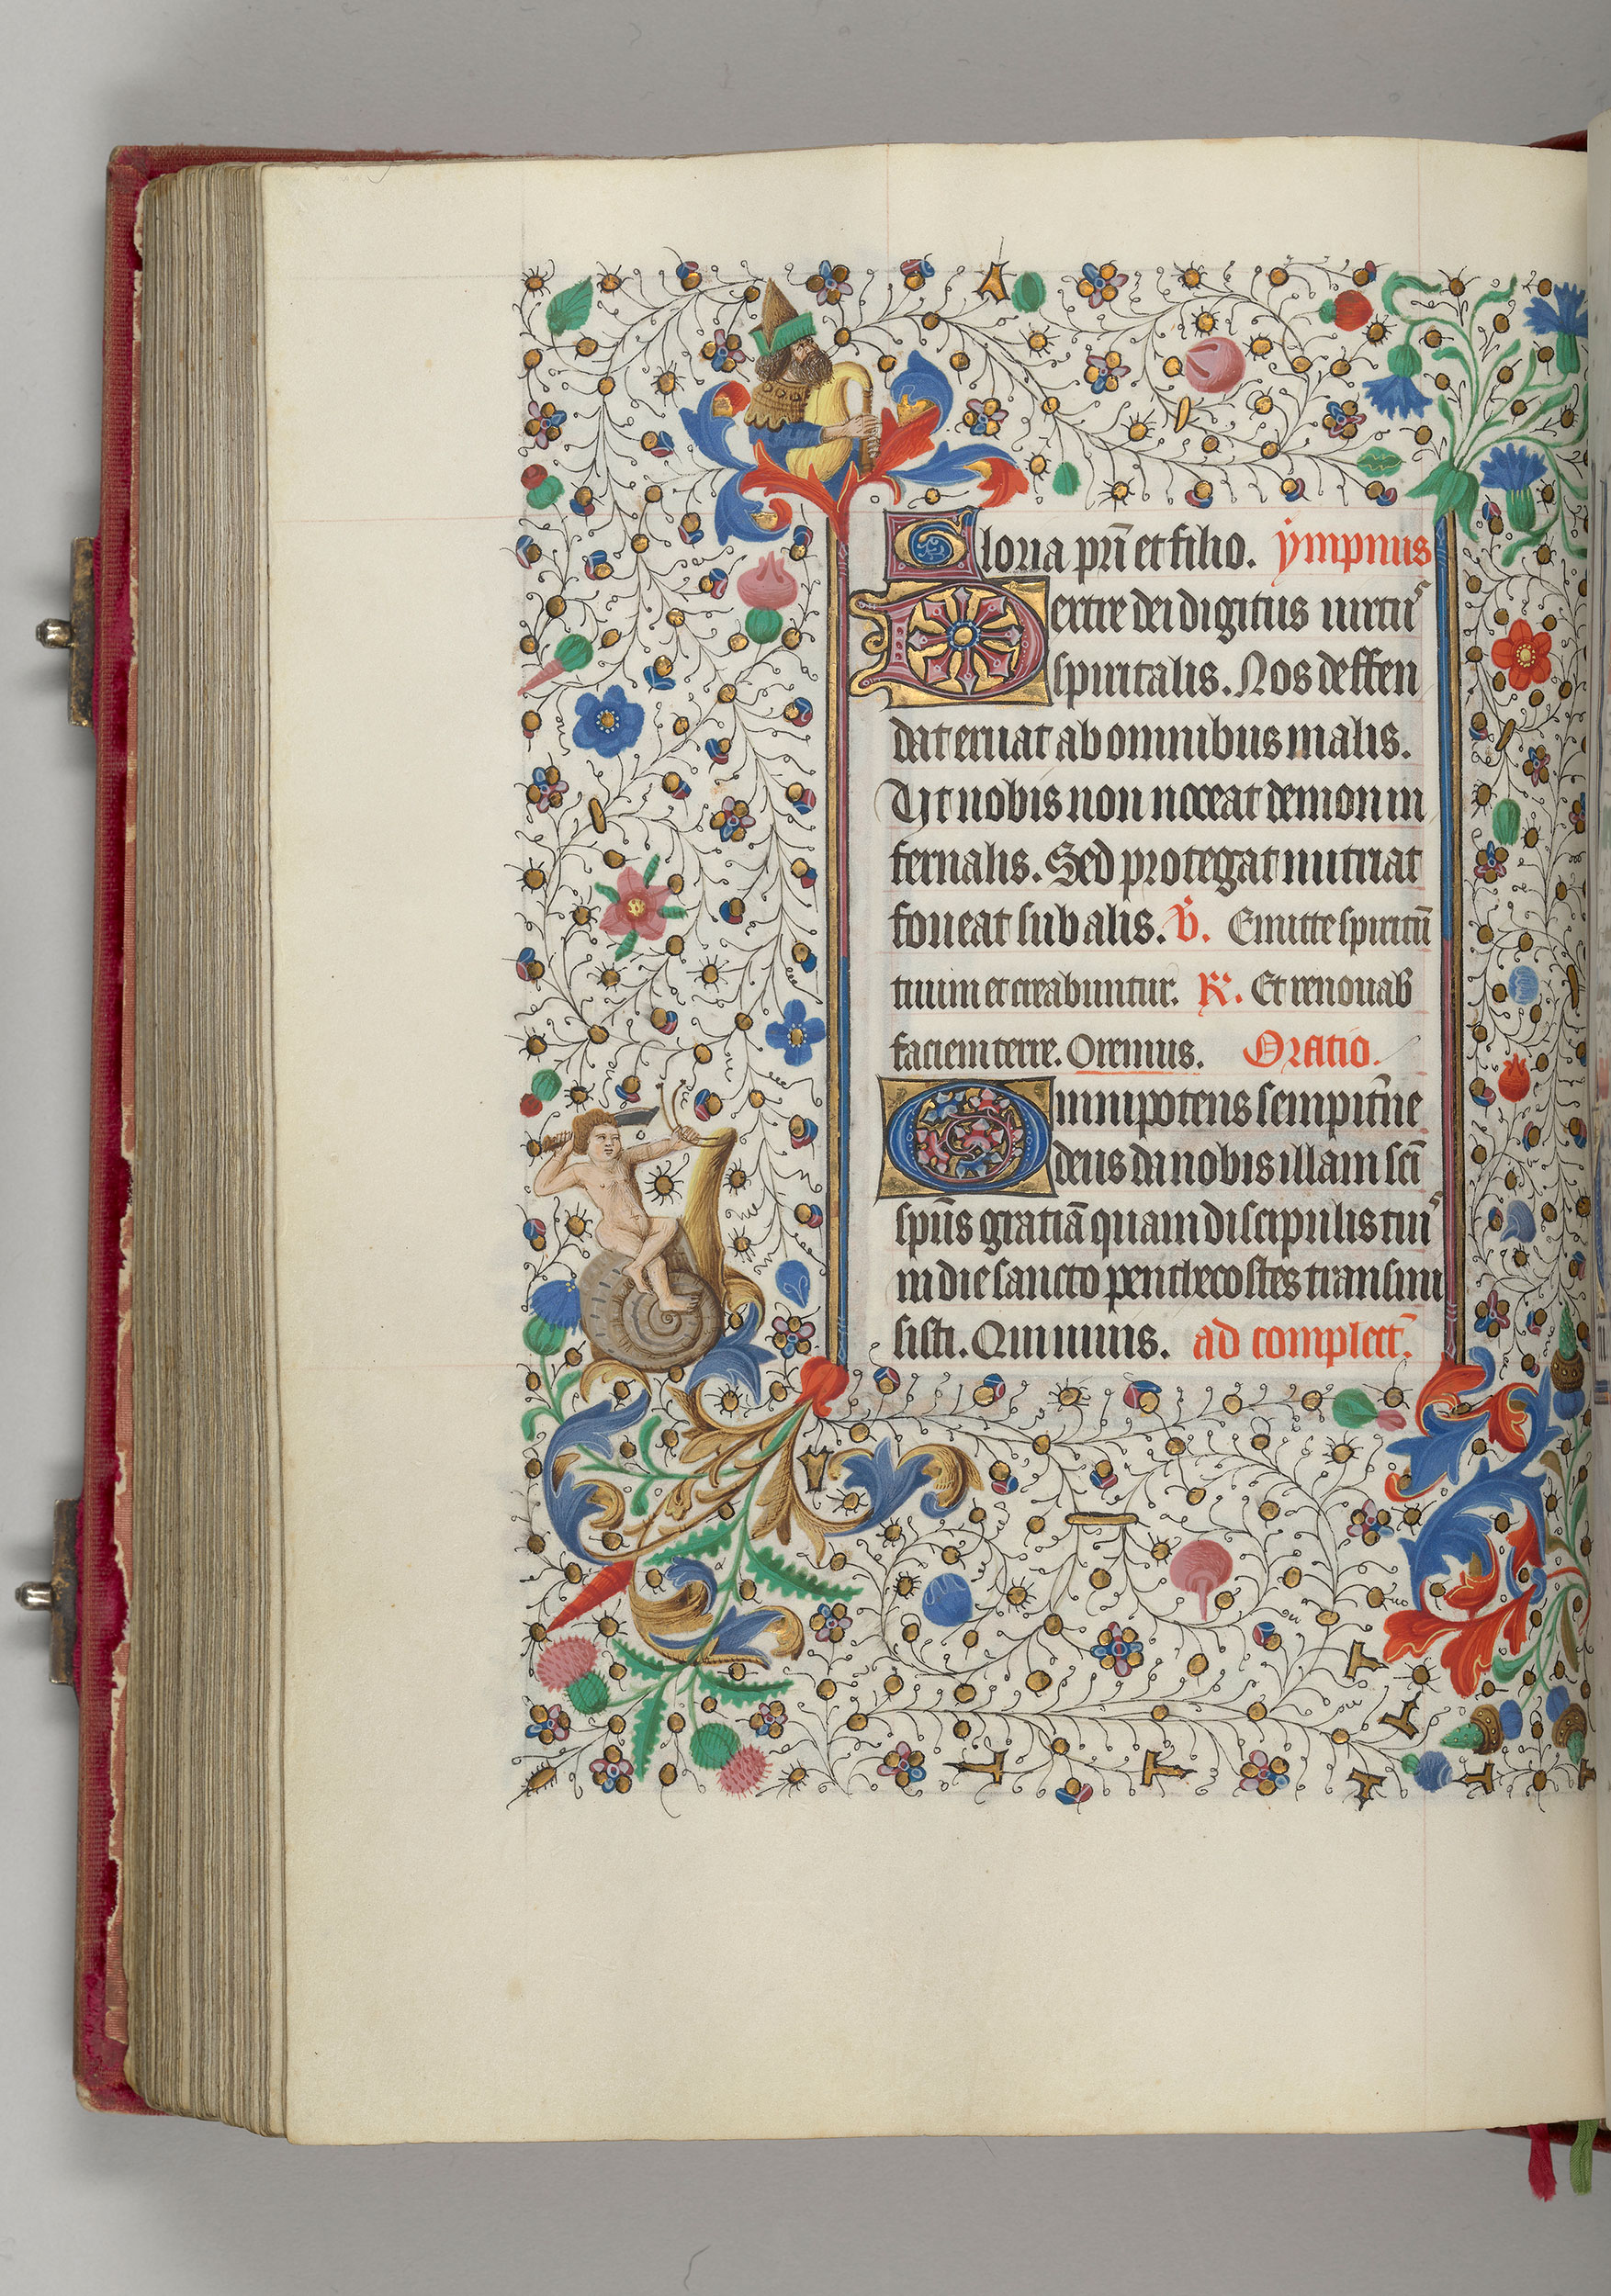 Gloria pr̄i et filio. ympnus
Dextre dei digitus uirtus
spiritalis. Nos deffen
dat eruat ab omnibus malis.
Ut nobis non noceat demon in
fernalis. Sed protegat nutriat
foueat sub alis. V̄. Emitte spiritū
tuum et creabuntur. R̄. Et renouab
faciem terre. Oremus. Oratio.
Omnipotens sempit̄ne
deus da nobis illam sc̄i
sp̄us gratiā quam discipulis tuis
in die sancto penthecostes transmi
sisti. Qui uiuis. ad complect̄.